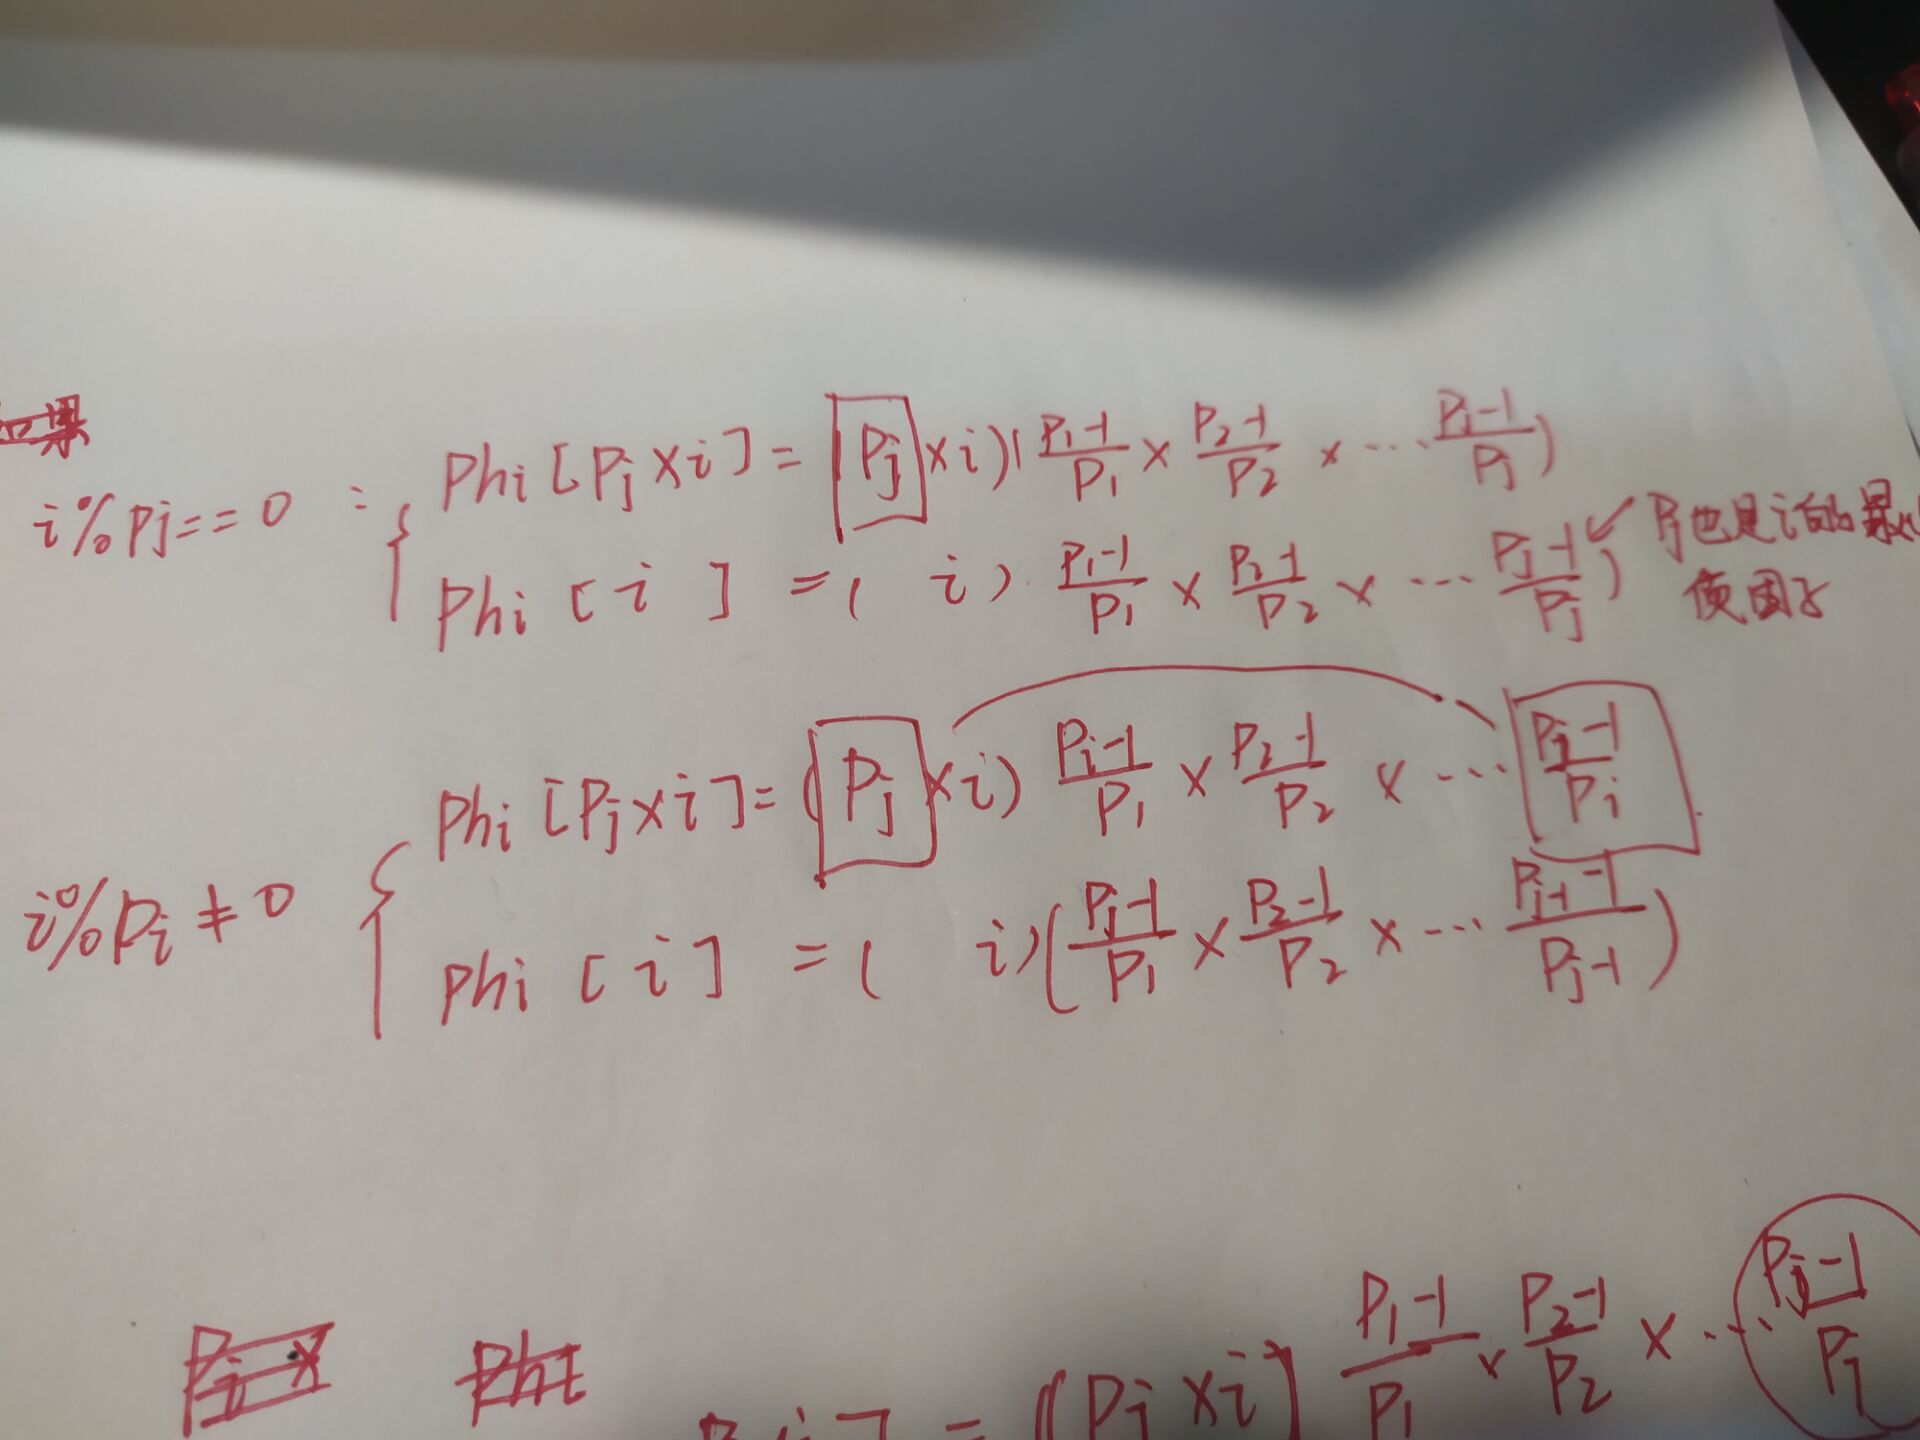 如果
i%Pj==0 : { Phi[Pj×i]=(Pj×i)(P1-1/P1 × P2-1/P2 × ... Pj-1/Pj)
Phi[i]=( i) P1-1/P1 × P2-1/P2 × ... Pj-1/Pj) ← Pj也是i的最小
质因子
i%Pj≠0 { Phi[Pj×i]=(Pj×i) P1-1/P1 × P2-1/P2 × ... Pj-1/Pj
Phi[i]=( i)(Pj-1/P1 × P2-1/P2 × ... Pj-1-1/Pj-1)
Pj × Phi
=(Pj×i) P1-1/P1 × P2-1/P2 × ... Pj-1/Pj